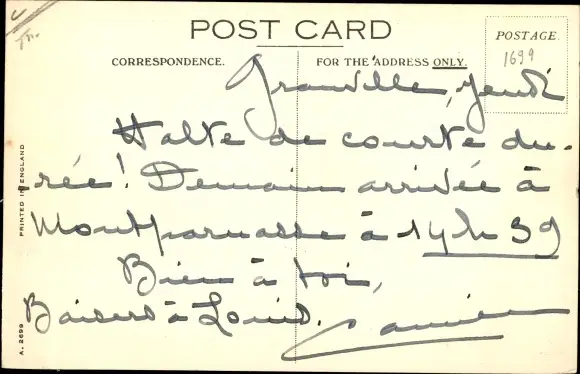 POST CARD
CORRESPONDENCE.
FOR THE ADDRESS ONLY.
POSTAGE.
1699
Granville, Jeudi
Halte de courte du-
rée! Demain arrivée à
Montparnasse à 14 h 39
Bien à toi,
Baisers à Louis.
PRINTED IN ENGLAND
A. 2699